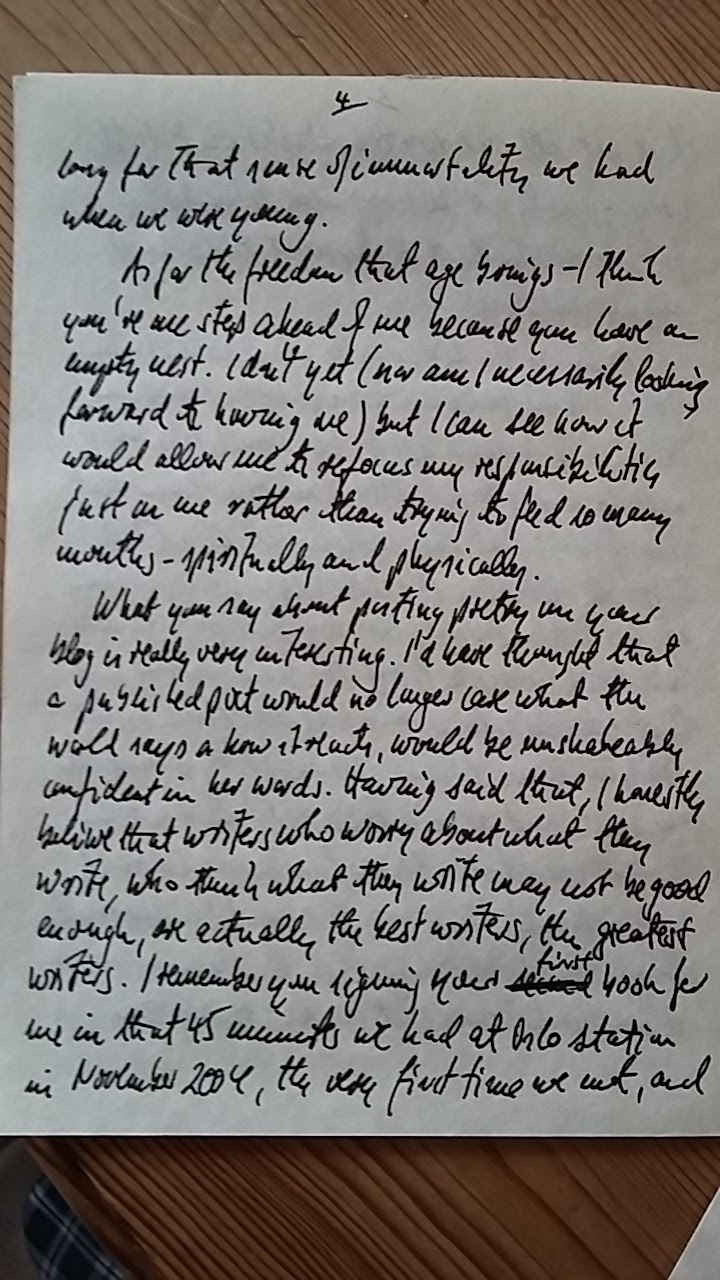 4
long for that sense of immortality we had
when we were young.
As for the freedom that age brings - I think
you're one step ahead of me because you have an
empty nest. I don't yet (nor am I necessarily looking
forward to having one) but I can see how it
would allow me to refocus my responsibilities
just on me rather than trying to feed so many
mouths - spiritually and physically.
What you say about posting poetry on your
blog is really very interesting. I'd have thought that
a published poet would no longer care what the
world says or how it reacts, would be unshakeably
confident in her words. Having said that, I honestly
believe that writers who worry about what they
write, who think what they write may not be good
enough, are actually the best writers, the greatest
writers. I remember you signing your first book for
me in that 45 minutes we had at Oslo station
in November 2004, the very first time we met, and